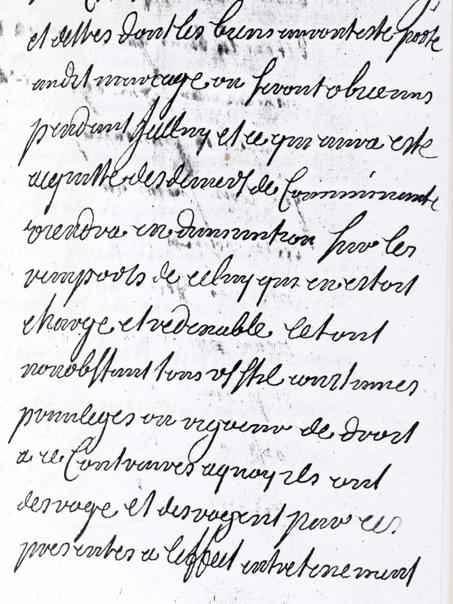 et debtes dont les biens auront esté poste
audit mariage ou seront obvenus
pendant Jcelluy et ce qui aura esté
acquitté des deniers de Communauté
viendra en diminution sur les
rempools de celuy qui en estoit
charge et redevable Le tout
nonobstant tous us stil coustumes
privileges ou rigueur de droit
a ce Contraires aquoy ils ont
desroge et desrogent par ces
presentes a Leffect entretenement